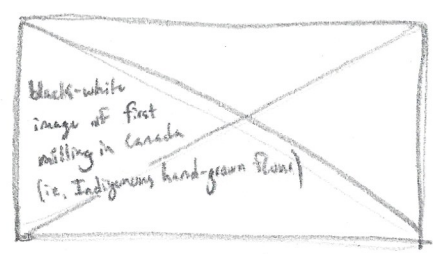 black-white
image of first
milling in Canada
(i.e. Indigenous hand-grown flour)